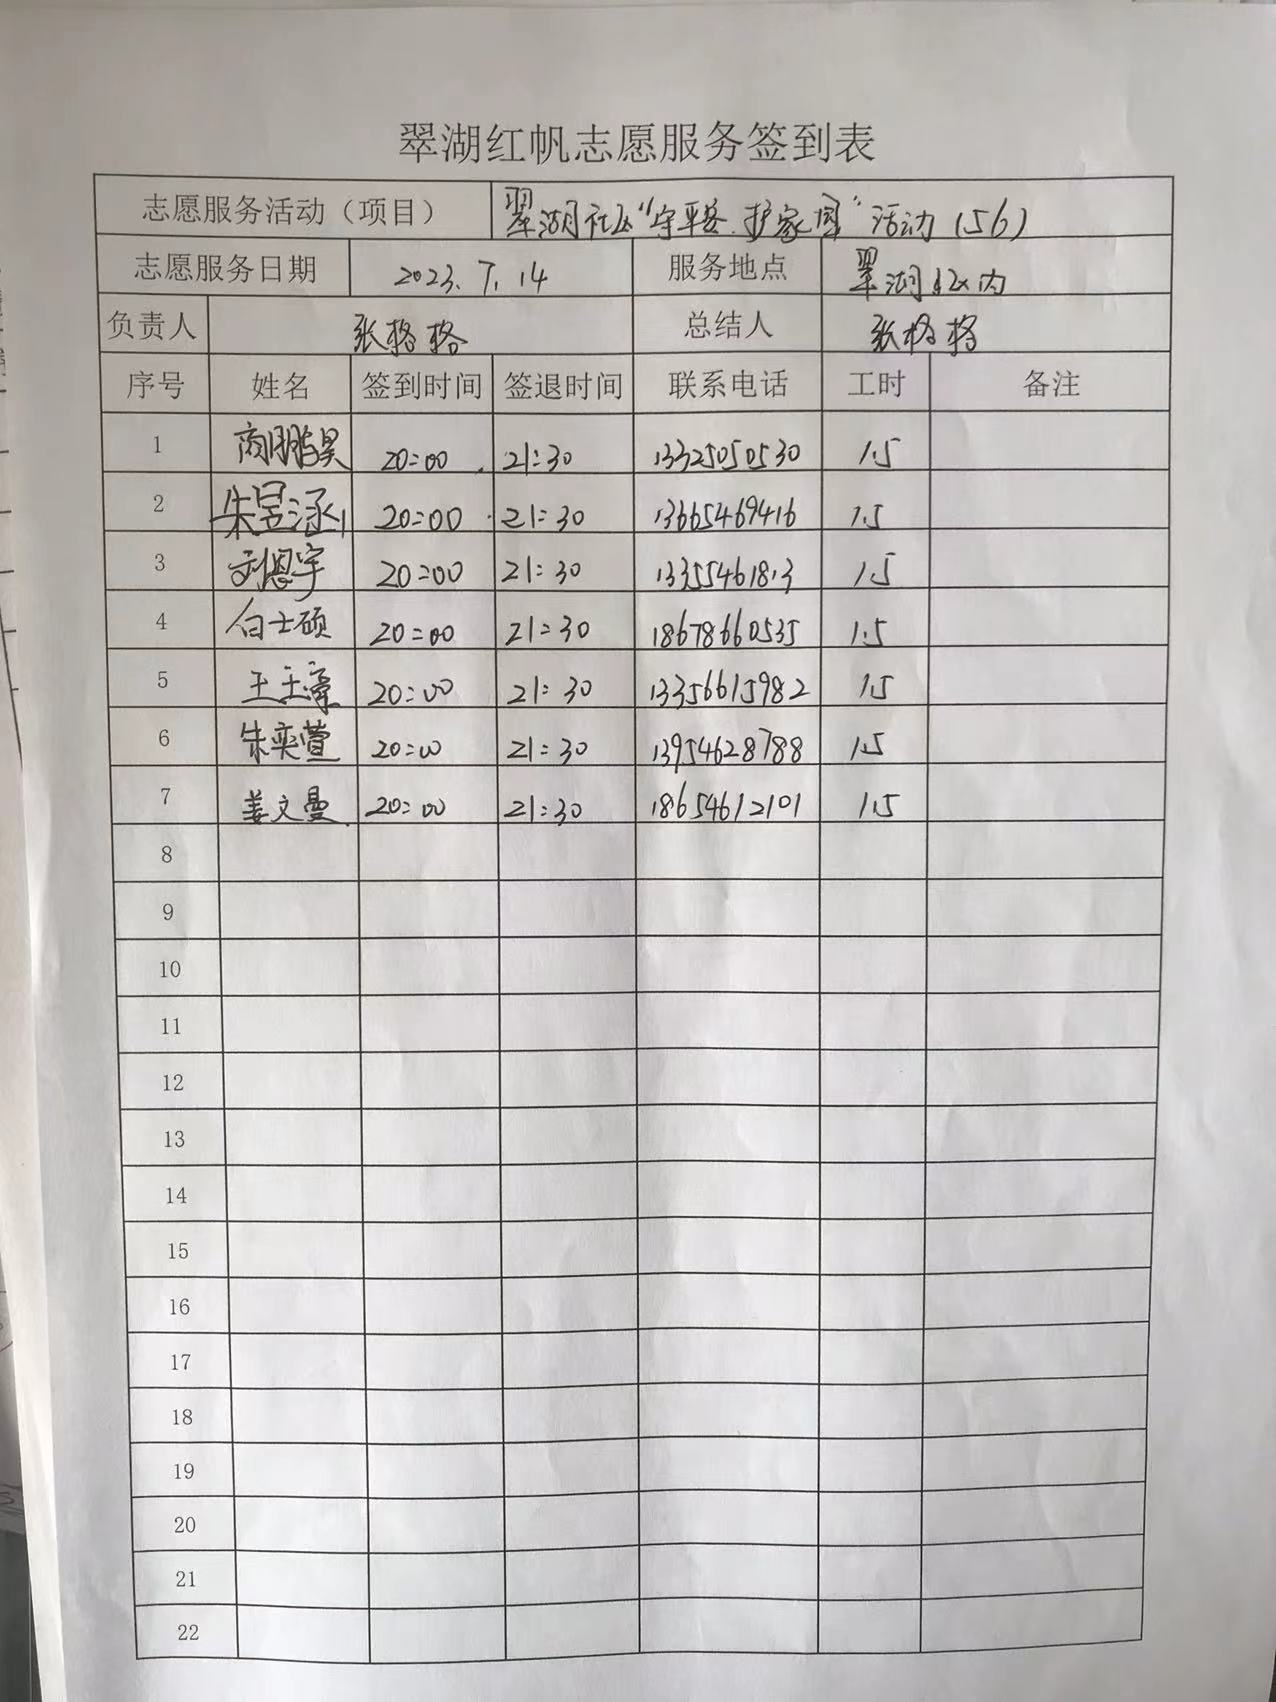 翠湖红帆志愿服务签到表
志愿服务活动（项目） 翠湖社区“守平安.护家园”活动（56）
志愿服务日期 2023.7.14 服务地点 翠湖辖区内
负责人 张格格 总结人 张格格
序号 姓名 签到时间 签退时间 联系电话 工时 备注
1 商鹏昊 20:00 21:30 13325050530 1.5
2 朱昱涵 20:00 21:30 13665469416 1.5
3 刘恩宇 20:00 21:30 13355461813 1.5
4 白士硕 20:00 21:30 18678660535 1.5
5 王 20:00 21:30 13356615982 1.5
6 朱奕萱 20:00 21:30 13954628788 1.5
7 姜文曼 20:00 21:30 18654612101 1.5
8
9
10
11
12
13
14
15
16
17
18
19
20
21
22